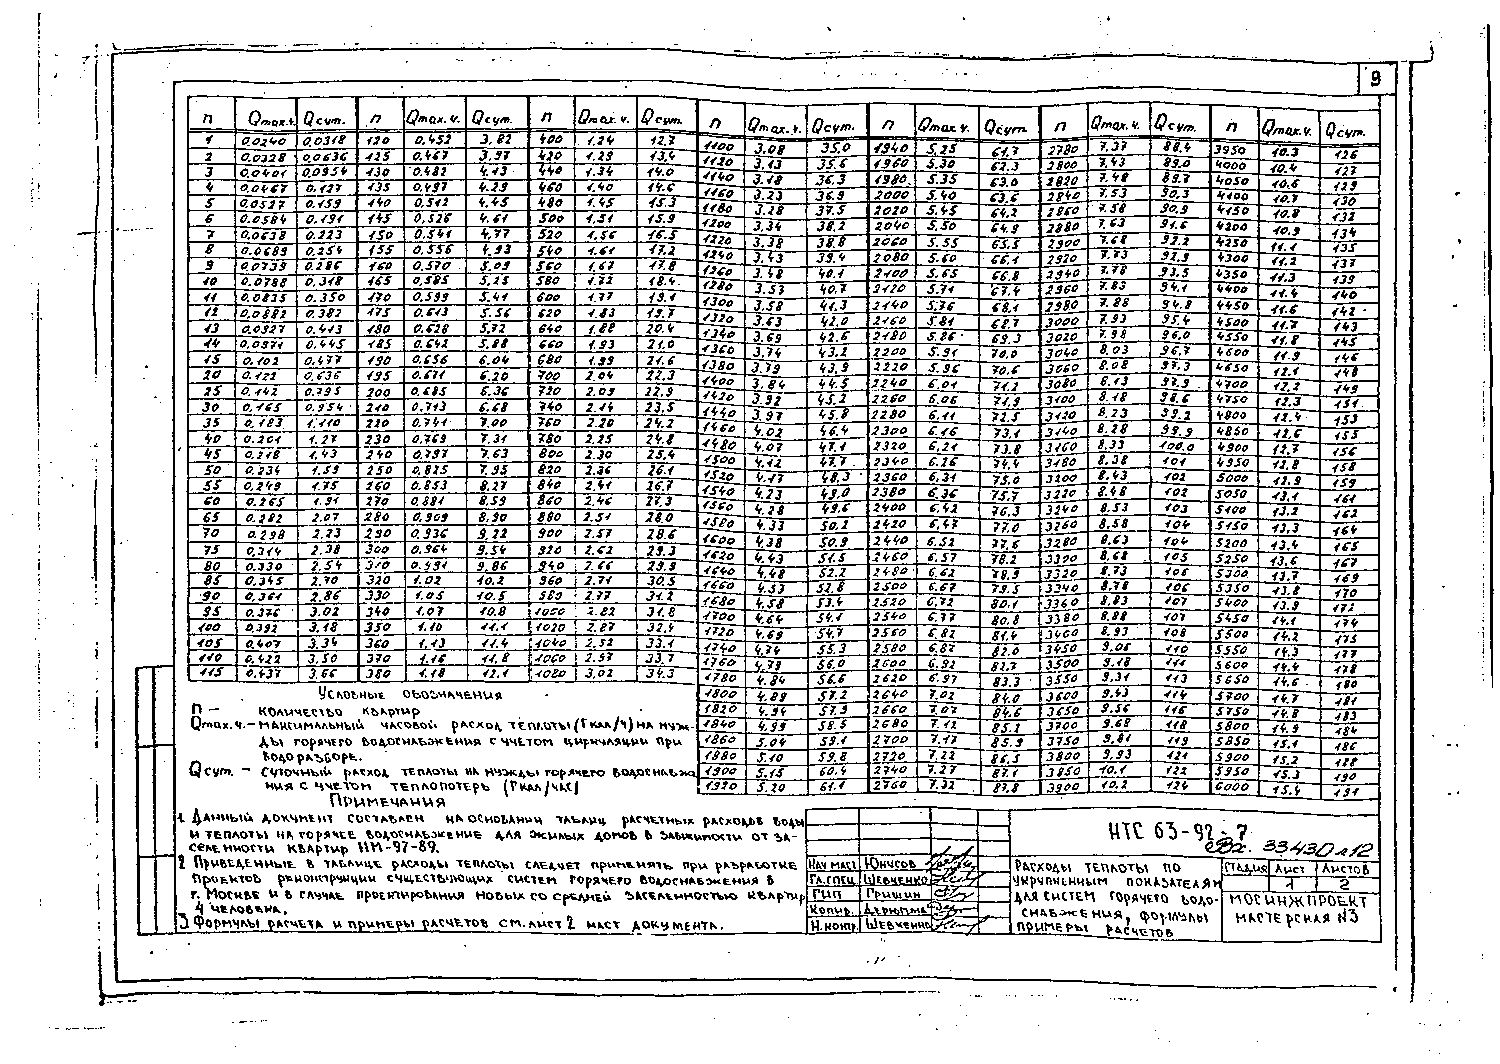 9
n Qmax.ч. Qсут. n Qmax.ч. Qсут. n Qmax.ч. Qсут. n Qmax.ч. Qсут. n Qmax.ч. Qсут. n Qmax.ч. Qсут. n Qmax.ч. Qсут.
1 0.0240 0.0318 120 0.452 3.82 400 1.24 12.7
2 0.0328 0.0636 125 0.467 3.97 420 1.29 13.4
3 0.0401 0.0954 130 0.482 4.13 440 1.34 14.0
4 0.0467 0.127 135 0.497 4.29 460 1.40 14.6
5 0.0527 0.159 140 0.512 4.45 480 1.45 15.3
6 0.0584 0.191 145 0.526 4.61 500 1.51 15.9
7 0.0638 0.223 150 0.541 4.77 520 1.56 16.5
8 0.0689 0.254 155 0.556 4.93 540 1.61 17.2
9 0.0739 0.286 160 0.570 5.09 560 1.67 17.8
10 0.0788 0.318 165 0.585 5.25 580 1.72 18.4
11 0.0835 0.350 170 0.599 5.41 600 1.77 19.1
12 0.0882 0.382 175 0.613 5.56 620 1.83 19.7
13 0.0927 0.413 180 0.628 5.72 640 1.88 20.4
14 0.0971 0.445 185 0.642 5.88 660 1.93 21.0
15 0.102 0.477 190 0.656 6.04 680 1.99 21.6
20 0.122 0.636 195 0.671 6.20 700 2.04 22.3
25 0.142 0.795 200 0.685 6.36 720 2.09 22.9
30 0.165 0.954 210 0.713 6.68 740 2.14 23.5
35 0.183 1.110 220 0.741 7.00 760 2.20 24.2
40 0.201 1.27 230 0.769 7.31 780 2.25 24.8
45 0.218 1.43 240 0.797 7.63 800 2.30 25.4
50 0.234 1.59 250 0.825 7.95 820 2.36 26.1
55 0.249 1.75 260 0.853 8.27 840 2.41 26.7
60 0.265 1.91 270 0.881 8.59 860 2.46 27.3
65 0.282 2.07 280 0.909 8.90 880 2.51 28.0
70 0.298 2.23 290 0.936 9.22 900 2.57 28.6
75 0.314 2.38 300 0.964 9.54 920 2.62 29.3
80 0.330 2.54 310 0.991 9.86 940 2.66 29.9
85 0.345 2.70 320 1.02 10.2 960 2.71 30.5
90 0.361 2.86 330 1.05 10.5 980 2.77 31.2
95 0.376 3.02 340 1.07 10.8 1000 2.82 31.8
100 0.392 3.18 350 1.10 11.1 1020 2.87 32.4
105 0.407 3.34 360 1.13 11.4 1040 2.92 33.1
110 0.422 3.50 370 1.16 11.8 1060 2.97 33.7
115 0.437 3.66 380 1.18 12.1 1080 3.02 34.3
1100 3.08 35.0 1940 5.25 61.7 2780 7.37 88.4 3950 10.3 126
1120 3.13 35.6 1960 5.30 62.3 2800 7.43 89.0 4000 10.4 127
1140 3.18 36.3 1980 5.35 63.0 2820 7.48 89.7 4050 10.6 129
1160 3.23 36.9 2000 5.40 63.6 2840 7.53 90.3 4100 10.7 130
1180 3.28 37.5 2020 5.45 64.2 2860 7.58 90.9 4150 10.8 132
1200 3.34 38.2 2040 5.50 64.9 2880 7.63 91.6 4200 10.9 134
1220 3.38 38.8 2060 5.55 65.5 2900 7.68 92.2 4250 11.1 135
1240 3.43 39.4 2080 5.60 66.1 2920 7.73 92.9 4300 11.2 137
1260 3.48 40.1 2100 5.65 66.8 2940 7.78 93.5 4350 11.3 139
1280 3.53 40.7 2120 5.71 67.4 2960 7.83 94.1 4400 11.4 140
1300 3.58 41.3 2140 5.76 68.1 2980 7.88 94.8 4450 11.6 142
1320 3.63 42.0 2160 5.81 68.7 3000 7.93 95.4 4500 11.7 143
1340 3.69 42.6 2180 5.86 69.3 3020 7.98 96.0 4550 11.8 145
1360 3.74 43.2 2200 5.91 70.0 3040 8.03 96.7 4600 11.9 146
1380 3.79 43.9 2220 5.96 70.6 3060 8.08 97.3 4650 12.1 148
1400 3.84 44.5 2240 6.01 71.2 3080 8.13 97.9 4700 12.2 149
1420 3.92 45.2 2260 6.06 71.9 3100 8.18 98.6 4750 12.3 151
1440 3.97 45.8 2280 6.11 72.5 3120 8.23 99.2 4800 12.4 153
1460 4.02 46.4 2300 6.16 73.1 3140 8.28 99.9 4850 12.6 155
1480 4.07 47.1 2320 6.21 73.8 3160 8.33 100.0 4900 12.7 156
1500 4.12 47.7 2340 6.26 74.4 3180 8.38 101 4950 12.8 158
1520 4.17 48.3 2360 6.31 75.0 3200 8.43 102 5000 12.9 159
1540 4.23 49.0 2380 6.36 75.7 3220 8.48 102 5050 13.1 161
1560 4.28 49.6 2400 6.42 76.3 3240 8.53 103 5100 13.2 162
1580 4.33 50.2 2420 6.47 77.0 3260 8.58 104 5150 13.3 164
1600 4.38 50.9 2440 6.52 77.6 3280 8.63 104 5200 13.4 165
1620 4.43 51.5 2460 6.57 78.2 3300 8.68 105 5250 13.6 167
1640 4.48 52.2 2480 6.62 78.9 3320 8.73 106 5300 13.7 169
1660 4.53 52.8 2500 6.67 79.5 3340 8.78 106 5350 13.8 170
1680 4.58 53.4 2520 6.72 80.1 3360 8.83 107 5400 13.9 172
1700 4.64 54.1 2540 6.77 80.8 3380 8.88 107 5450 14.1 174
1720 4.69 54.7 2560 6.82 81.4 3400 8.93 108 5500 14.2 175
1740 4.74 55.3 2580 6.87 82.0 3450 9.06 110 5550 14.3 177
1760 4.79 56.0 2600 6.92 82.7 3500 9.18 111 5600 14.4 178
1780 4.84 56.6 2620 6.97 83.3 3550 9.31 113 5650 14.6 180
1800 4.89 57.2 2640 7.02 84.0 3600 9.43 114 5700 14.7 181
1820 4.94 57.9 2660 7.07 84.6 3650 9.56 116 5750 14.8 183
1840 4.99 58.5 2680 7.12 85.2 3700 9.68 118 5800 14.9 184
1860 5.04 59.1 2700 7.17 85.9 3750 9.81 119 5850 15.1 186
1880 5.10 59.8 2720 7.22 86.5 3800 9.93 121 5900 15.2 188
1900 5.15 60.4 2740 7.27 87.1 3850 10.1 122 5950 15.3 190
1920 5.20 61.1 2760 7.32 87.8 3900 10.2 124 6000 15.4 191
Условные обозначения
n – количество квартир
Qmax.ч. – максимальный часовой расход теплоты (Гкал/ч) на нуж-
ды горячего водоснабжения с учётом циркуляции при
водоразборе.
Qсут. – суточный расход теплоты на нужды горячего водоснабже
ния с учётом теплопотерь (Гкал/час)
Примечания
1. Данный документ составлен на основании таблиц расчетных расходов воды
и теплоты на горячее водоснабжение для жилых домов в зависимости от за-
селенности квартир НМ-97-89.
2 Приведенные в таблице расходы теплоты следует применять при разработке
проектов реконструкции существующих систем горячего водоснабжения в
г. Москве и в случае проектирования новых со средней заселенностью квартир
4 человека.
3 Формулы расчета и примеры расчетов см. лист 2 наст документа.
НТС 63-92-7
33430 л 12
Нач маст. Юнусов
Гл. спец Шевченко
ГИП Гришин
Копир.
Н. контр. Шевченко
Расходы теплоты по
укрупненным показателям
для систем горячего водо-
снабжения, формулы
примеры расчетов
Стадия Лист Листов
1 2
МОСИНЖПРОЕКТ
МАСТЕРСКАЯ N3